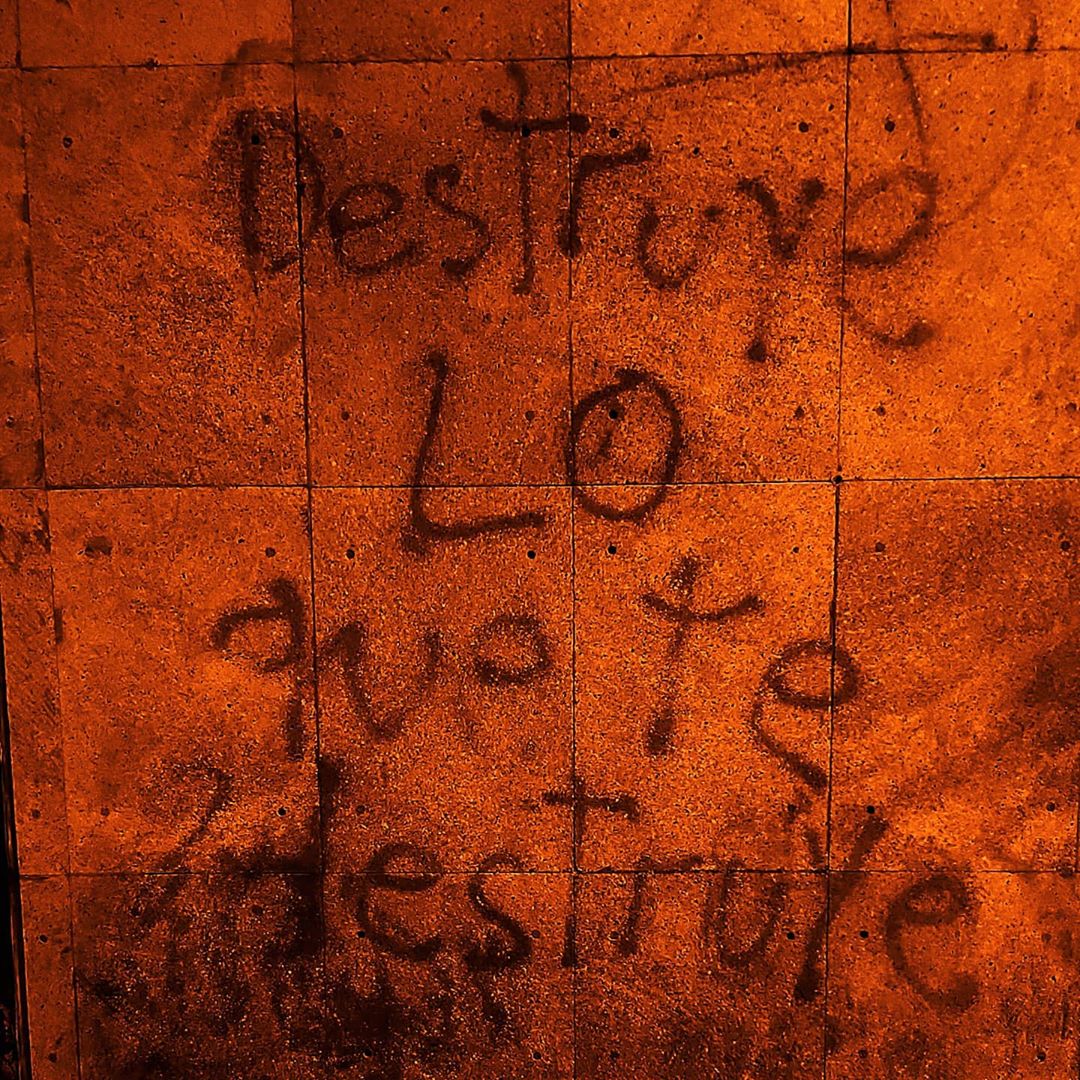 Destruye
LO
quo te
destruye